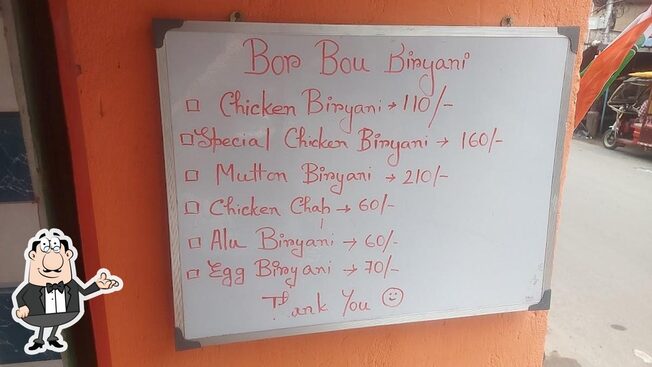 Bor Bou Biryani
Chicken Biryani → 110/-
Special Chicken Biryani → 160/-
Mutton Biryani → 210/-
Chicken Chap → 60/-
Alu Biryani → 60/-
Egg Biryani → 70/-
Thank You ☺